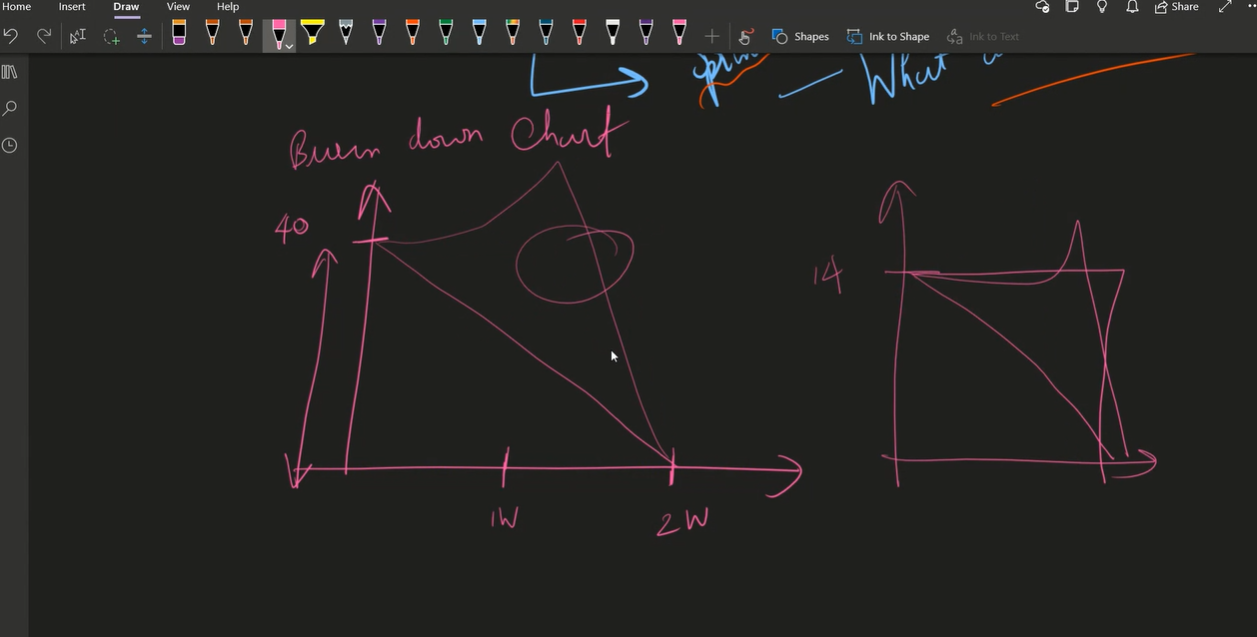 Home Insert Draw View Help
Share
Shapes Ink to Shape Ink to Text
What
Burn down Chart
40
14
1W 2W